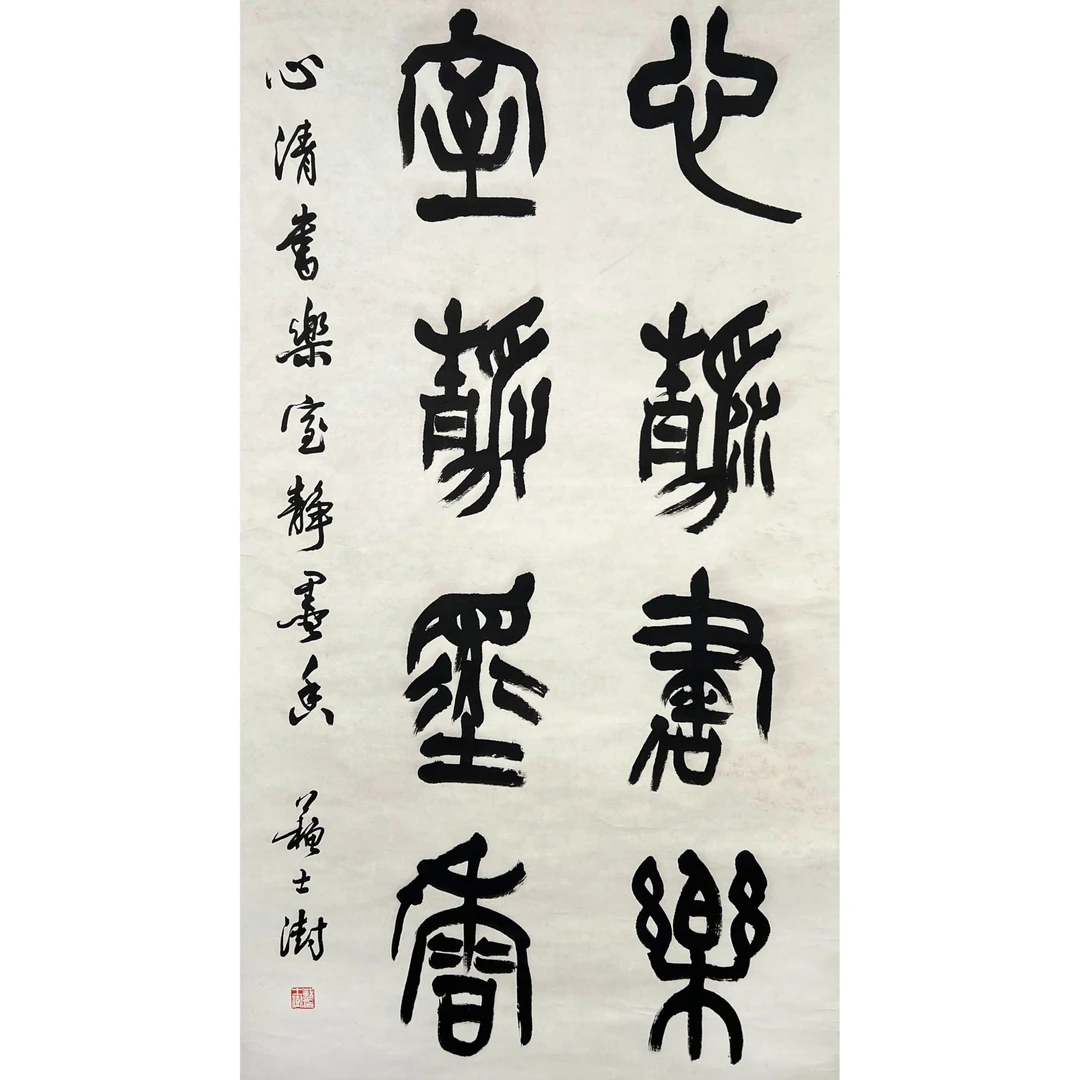 心瀞書樂
室靜墨香
心清書樂室靜墨香 蘇士澍